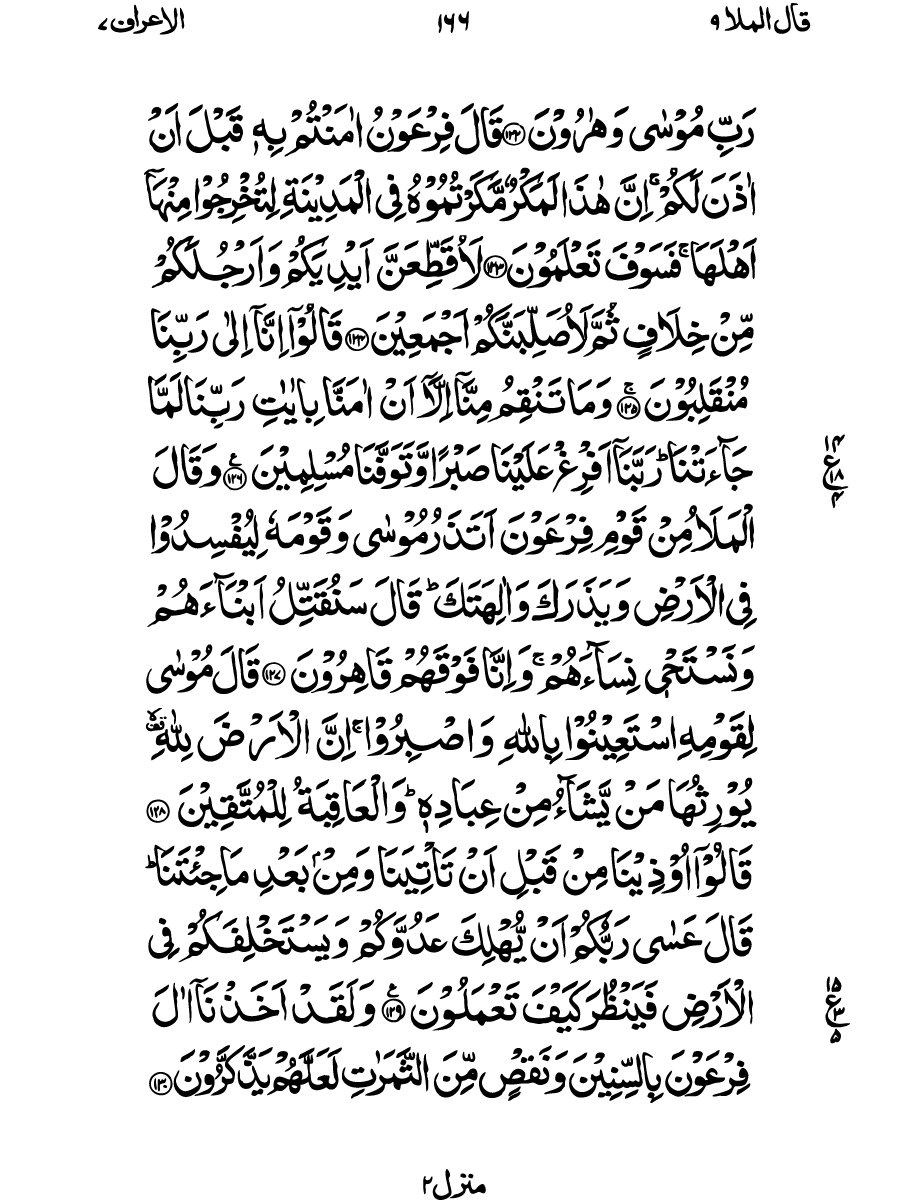 قال الملا ٩
١٦٦
الاعراف ٧
رَبِّ مُوْسٰى وَهٰرُوْنَ ﴿١٢٢﴾ قَالَ فِرْعَوْنُ اٰمَنْتُمْ بِهٖ قَبْلَ اَنْ
اٰذَنَ لَكُمْ ۚ اِنَّ هٰذَا لَمَكْرٌ مَّكَرْتُمُوْهُ فِى الْمَدِيْنَةِ لِتُخْرِجُوْا مِنْهَاۤ
اَهْلَهَا ۚ فَسَوْفَ تَعْلَمُوْنَ ﴿١٢٣﴾ لَاُقَطِّعَنَّ اَيْدِيَكُمْ وَاَرْجُلَكُمْ
مِّنْ خِلَافٍ ثُمَّ لَاُصَلِّبَنَّكُمْ اَجْمَعِيْنَ ﴿١٢٤﴾ قَالُوْۤا اِنَّاۤ اِلٰى رَبِّنَا
مُنْقَلِبُوْنَ ۚ ﴿١٢٥﴾ وَمَا تَنْقِمُ مِنَّاۤ اِلَّاۤ اَنْ اٰمَنَّا بِاٰيٰتِ رَبِّنَا لَمَّا
جَآءَتْنَا ؕ رَبَّنَاۤ اَفْرِغْ عَلَيْنَا صَبْرًا وَّتَوَفَّنَا مُسْلِمِيْنَ ﴿١٢٦﴾ ع وَقَالَ
١٤
ع
١٨
٤
الْمَلَاُ مِنْ قَوْمِ فِرْعَوْنَ اَتَذَرُ مُوْسٰى وَقَوْمَهٗ لِيُفْسِدُوْا
فِى الْاَرْضِ وَيَذَرَكَ وَاٰلِهَتَكَ ؕ قَالَ سَنُقَتِّلُ اَبْنَآءَهُمْ
وَنَسْتَحْىٖ نِسَآءَهُمْ ۚ وَاِنَّا فَوْقَهُمْ قَاهِرُوْنَ ﴿١٢٧﴾ قَالَ مُوْسٰى
لِقَوْمِهِ اسْتَعِيْنُوْا بِاللّٰهِ وَاصْبِرُوْا ۚ اِنَّ الْاَرْضَ لِلّٰهِ ۙ
يُوْرِثُهَا مَنْ يَّشَآءُ مِنْ عِبَادِهٖ ؕ وَالْعَاقِبَةُ لِلْمُتَّقِيْنَ ﴿١٢٨﴾
قَالُوْۤا اُوْذِيْنَا مِنْ قَبْلِ اَنْ تَاْتِيَنَا وَمِنْۢ بَعْدِ مَا جِئْتَنَا ؕ
قَالَ عَسٰى رَبُّكُمْ اَنْ يُّهْلِكَ عَدُوَّكُمْ وَيَسْتَخْلِفَكُمْ فِى
الْاَرْضِ فَيَنْظُرَ كَيْفَ تَعْمَلُوْنَ ﴿١٢٩﴾ ع وَلَقَدْ اَخَذْنَاۤ اٰلَ
١٥
ع
٣
٥
فِرْعَوْنَ بِالسِّنِيْنَ وَنَقْصٍ مِّنَ الثَّمَرٰتِ لَعَلَّهُمْ يَذَّكَّرُوْنَ ﴿١٣٠﴾
منزل ٢